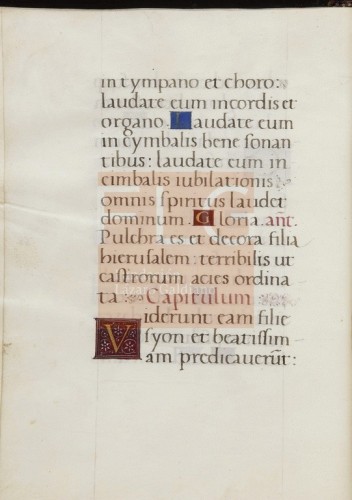 in tympano et choro:
laudate eum in cordis et
organo. Laudate eum
in cymbalis bene sonan
tibus: laudate eum in
cimbalis iubilationis
omnis spiritus laudet
dominum. Gloria. an̄t.
Pulchra es et decora filia
hierusalem: terribilis ut
castrorum acies ordina
ta: Capitulum
Viderunt eam filie
syon et beatissim
am predicauerūt: